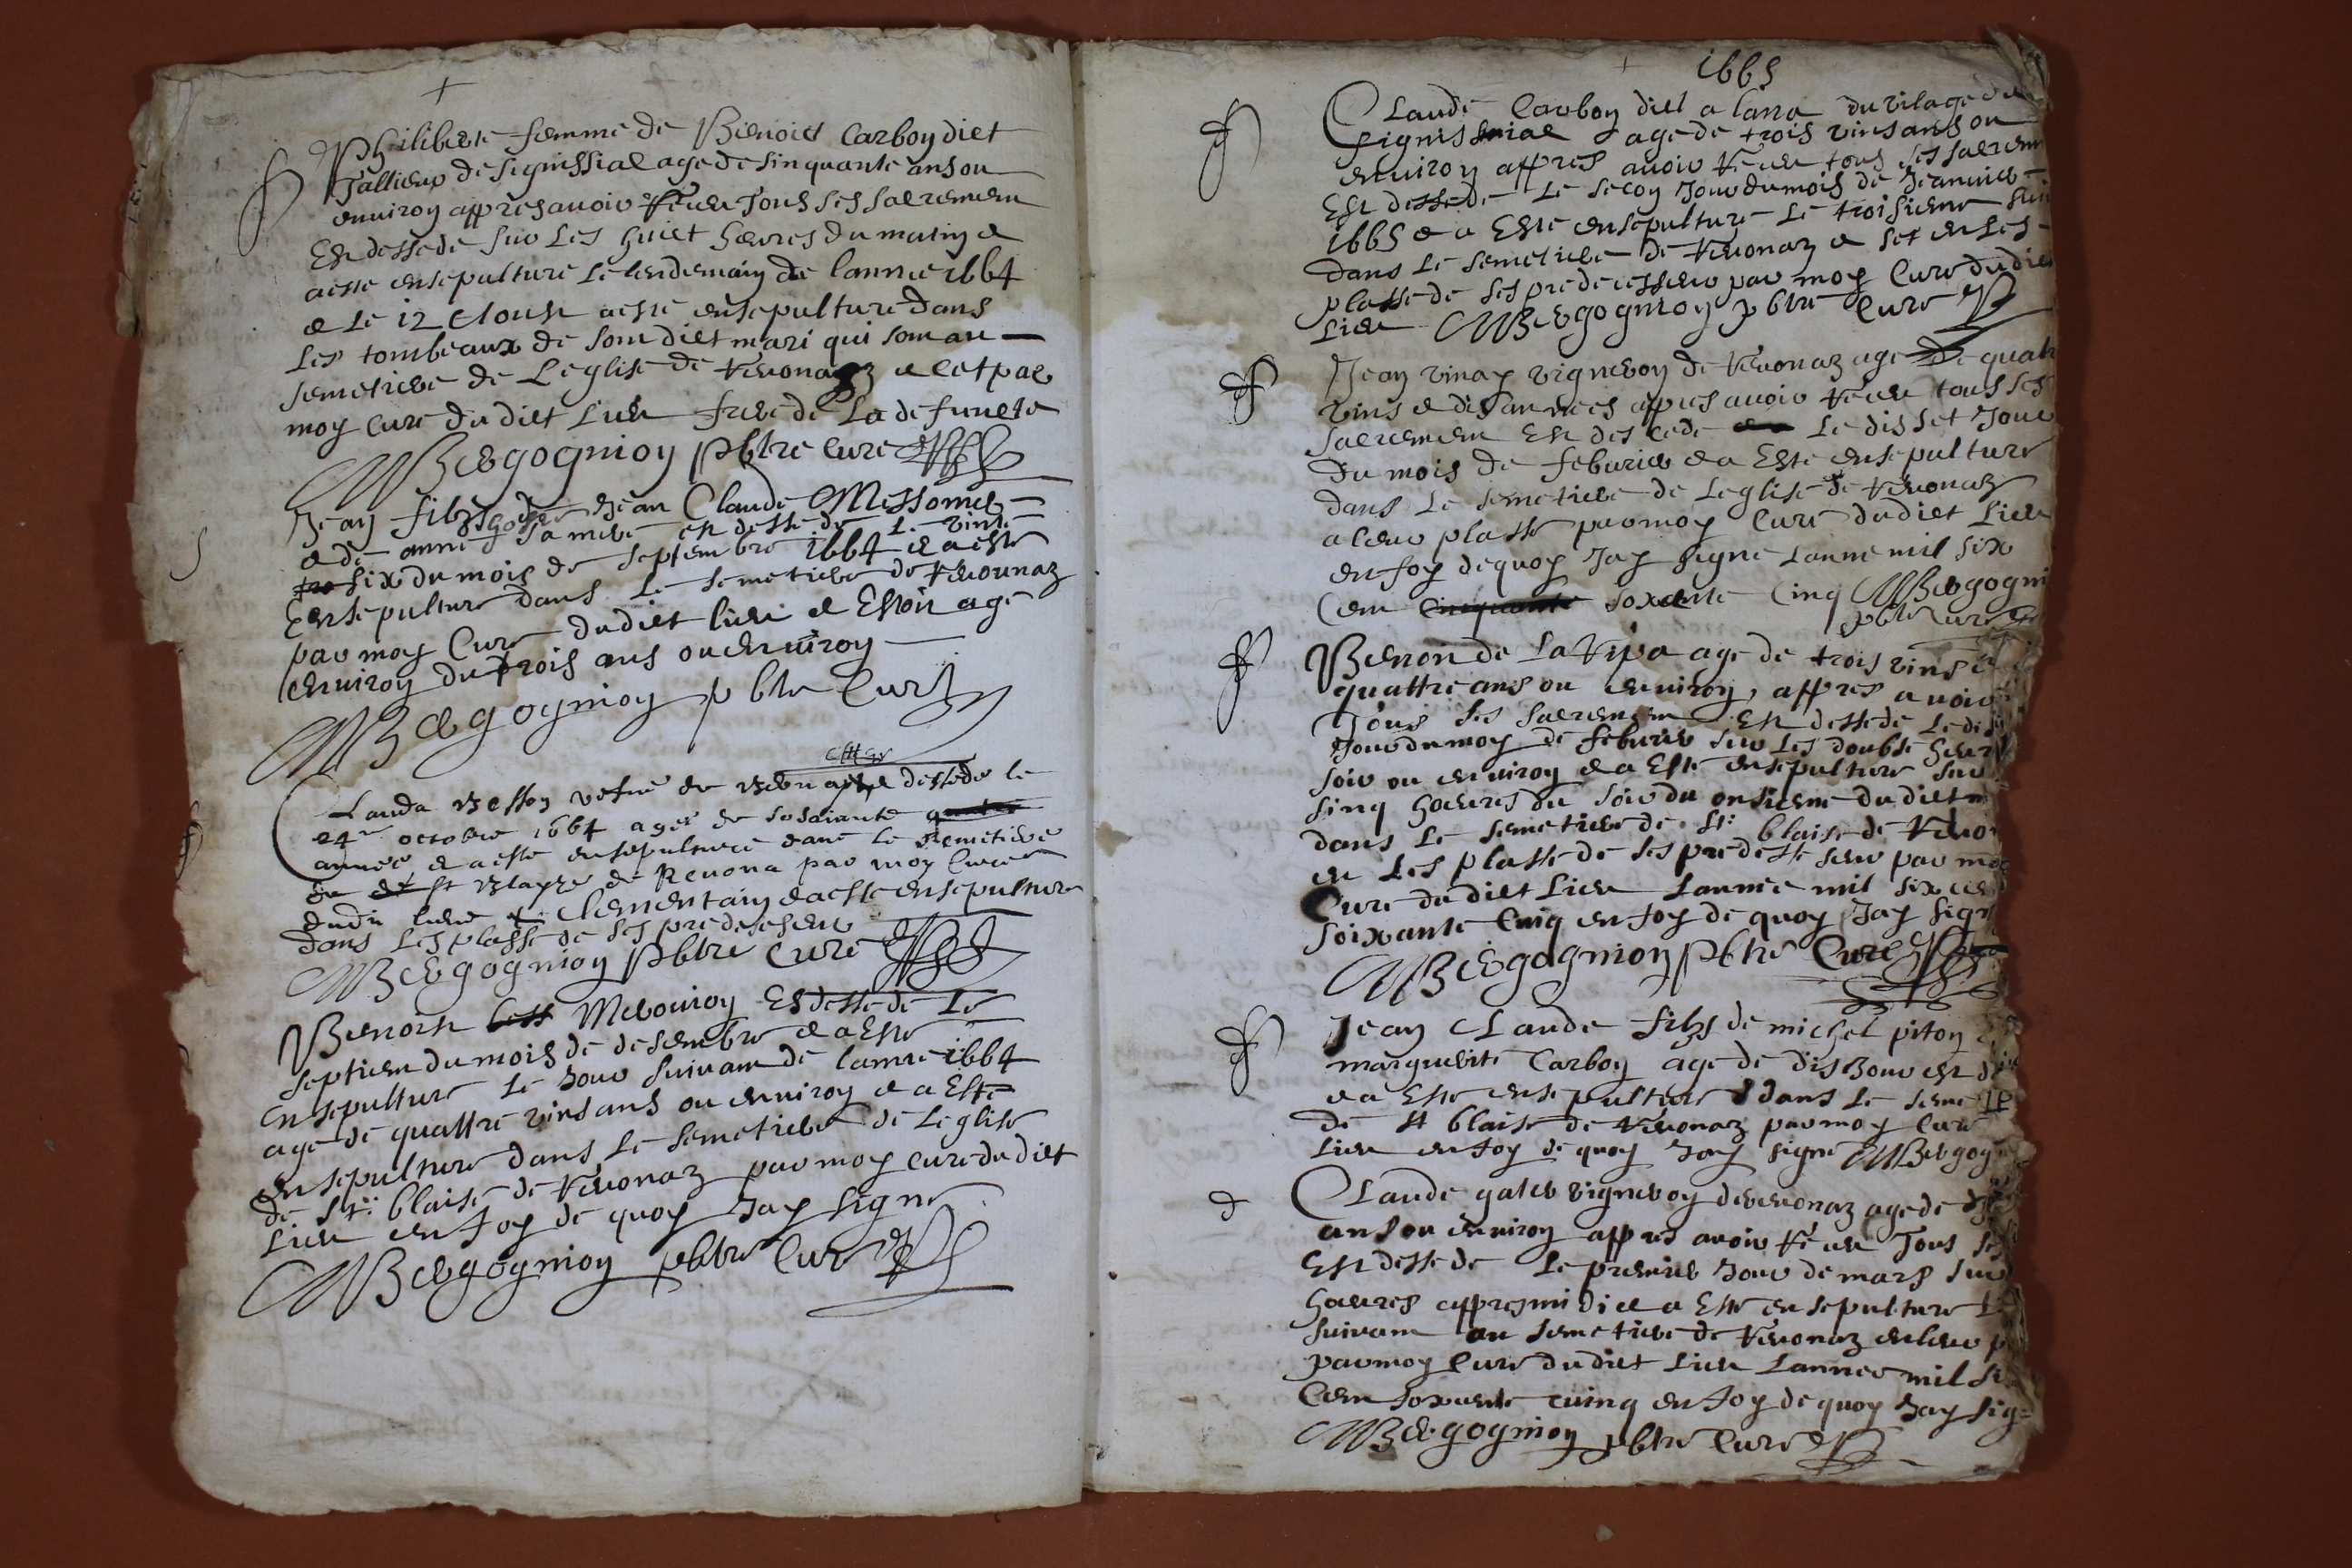 Philiberte femme de Benoict Carbon dict
Tallieux de signissial age de sinquante ans ou
enuiron appres auoir Receu Tous ses sacremen
Est dessede sur Les huict heures du matin et
a este ensepulturé Le lendemain de lannee 1664
et Le 12 a este ensepulturé dans
Les tombeaux de son dict mari qui son au
semetiere de Leglise de Reuonaz et cet par
moy curé du dict Lieu frere de La defuncte
MBergognion pbtre curé
Jean filz de Jean Claude
et de anne est dessede Le vint
six du mois de septembre 1664 et a esté
Ensepulturé dans Le semetiere de Reuonnaz
par moy Curé dudict lieu et Estoit age
enuiron du trois ans ou enuiron
MBergognion pbtre Curé
Clauda Besson vefue de dessede le
24me octobre 1664 agee de soisainte
annee et a esté ensepulturé dans le semetiere
de st Blayze de Reuona par moy Curé
dudit lieu Clementain et a esté ensepulturé
dans Les plasse de ses predeseseur
MBergognion pbtre Curé
Benoist Meronion Est dessede Le
septiem du mois de desembre et a Esté
ensepulturé Le Jour suiuam de lannee 1664
age de quattre vins ans ou enuiron et a Esté
ensepulturé dans Le semetiere de Leglise
de St: blaise de Reuonaz par moy curé du dict
Lieu en foy de quoy Jay signé
MBergognion pbtre Curé
1665
Claude Carbon dict a lana du vilage de
signissiat age de trois vins ans ou
enuiron appres auoir Receu tous ses sacrem
Est dessede Le secon Jour du mois de Jeanuier
1665 et a Esté ensepulturé Le troisieme
dans Le semetiere de Reuonaz et set en Les
plasse de ses predecesseur par moy Curé du dict
Lieu MBergognion pbtre Curé
Jean vinay vigneron de Reuonaz age de quatr
vins et dis annees appres auoir Receu tous ses
sacremen Est dessede Le dis set Jour
du mois de feburier et a Esté ensepulturé
dans Le semetiere de Leglise de Reuonaz
a leur plasse par moy Curé du dict Lieu
en foy dequoy Jay signé Lanne mil six
Cen soxente Cinq MBergogni
pbtre curé
Benon de La Ripa age de trois vins
quattre ans ou enuiron, appres auoir
Tous ses sacremen Est dessede Le
Jour du moy de feburier sur Les doubse heur
soir ou enuiron et a Esté ensepulturé sur
sinq heures du soir du onsieme du dict m
dans Le semetiere de St: blaise de Reuo
en Les plasse de ses predessesseur par mo
Curé du dict Lieu Lannee mil six cen
soixante Cinq en foy de quoy Jay sign
MBergognion pbtre Curé
Jean Claude filz de michel piton
marguerite Carbon age de dis Jour est
et a Esté ensepulturé dans Le seme
de St blaise de Reuonaz par moy Curé
Lieu en foy de quoy Jay signé MBergog
Claude galet vigneron de reuonaz age de
ans ou enuiron appres auoir Receu Tous ses
Est dessede Le premier Jour de mars sur
heures appres midi et a Esté ensepulturé
suiuam au semetiere de Reuonaz en leur p
par moy Curé du dict Lieu Lannee mil si
Cen soxente cuinq en foy de quoy Jay sig
MBergognion pbtre Curé